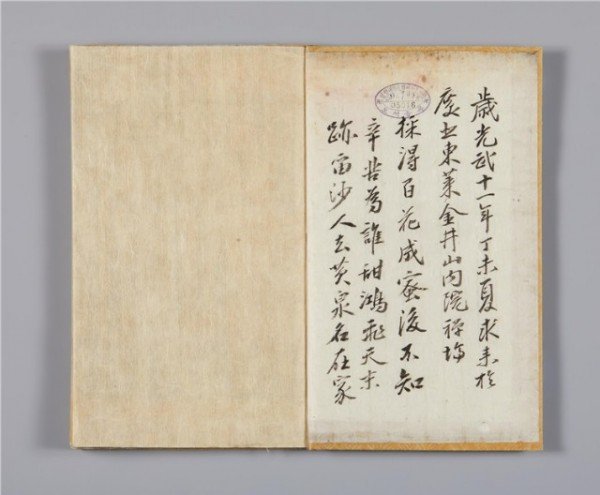 歲光武十一年丁未夏求來於
慶東萊金井山內院禪場
採得百花成蜜後不知
辛苦爲誰甜鴻飛天末
跡留沙人去黃泉名在家